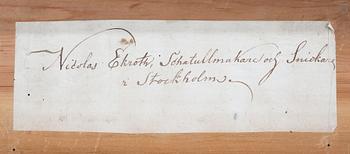 Nicolas Ekroth, Schatullmakare och Snickare
i Stockholm.